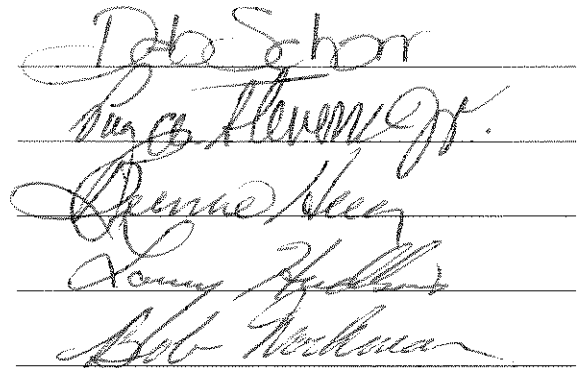 Deb Schorr
Stevens Jr.
Bernie Heier
Larry Hudkins
Bob Workman